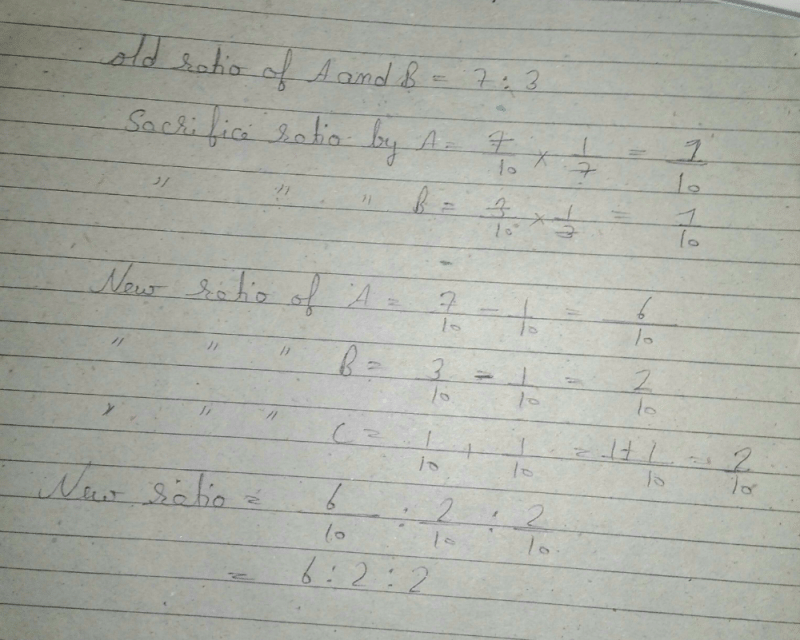 old ratio of A and B = 7 : 3
Sacrifice ratio by A = 7/10 × 1/7 = 1/10
" " " B = 3/10 × 1/3 = 1/10
New ratio of A = 7/10 - 1/10 = 6/10
" " " B = 3/10 - 1/10 = 2/10
" " " C = 1/10 + 1/10 = 1+1/10 = 2/10
New ratio = 6/10 : 2/10 : 2/10
= 6 : 2 : 2